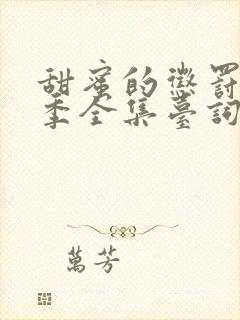 甜蜜的懲罰
季全集臺詞
萬芳